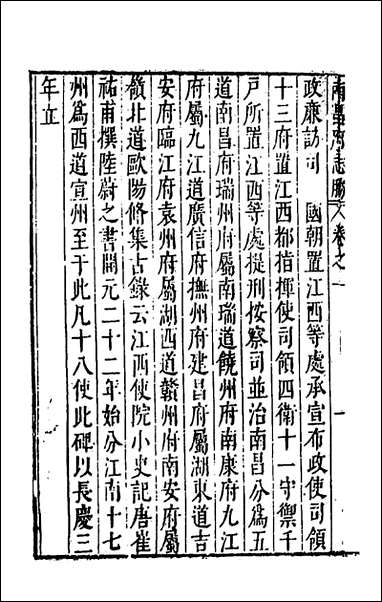 南昌府志勝卷之一
政肅訪司　國朝置江西等處承宣布政使司領
十三府置江西都指揮使司領四衛十一守禦千
戸所置江西等處提刑按察司並治南昌分爲五
道南昌府瑞州府屬南瑞道饒州府南康府九江
府屬九江道廣信府撫州府建昌府屬湖東道吉
安府臨江府袁州府屬湖西道贛州府南安府屬
嶺北道歐陽修集古錄云江西使院小史記唐崔
祐甫撰陸蔚之書開元二十二年始分江南十七
州爲西道宣州至于此凡十八使此碑以長慶三
年立